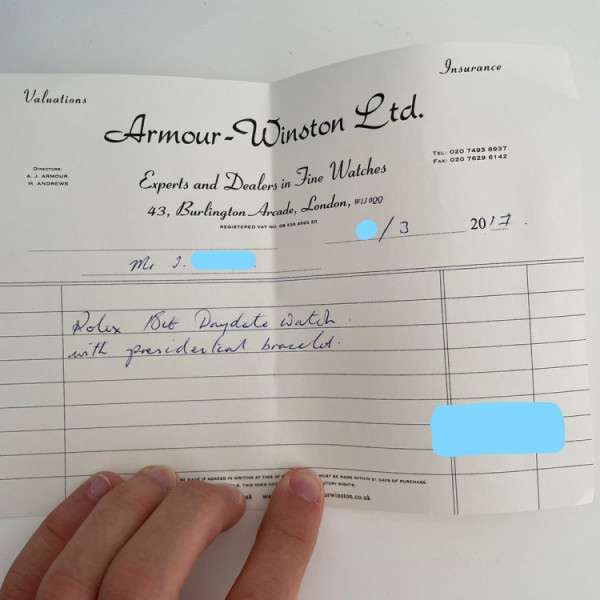 Valuations
Insurance
Armour-Winston Ltd.
DIRECTORS:
A. J. ARMOUR,
M. ANDREWS
TEL: 020 7493 8937
FAX: 020 7629 6142
Experts and Dealers in Fine Watches
43, Burlington Arcade, London, W1J 0QQ
REGISTERED VAT NO. GB
/ 3 2017.
Mr J.
Rolex 18ct Daydate watch
with presidential bracelet.
BE MADE IF AGREED IN WRITING AT TIME OF MUST BE MADE WITHIN 21 DAYS OF PURCHASE.
THIS DOES NOT RIGHTS.
uk urwinston.co.uk